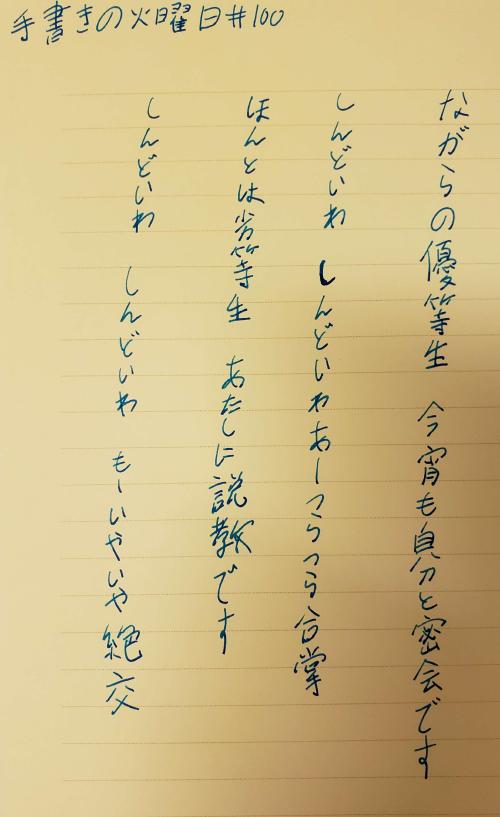 手書きの火曜日#100
ながらの優等生 今宵も自分と密会です
しんどいわ しんどいわあーつらつら合掌
ほんとは劣等生 あたしに説教です
しんどいわ しんどいわ もーいやいや絶交